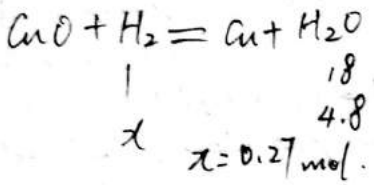 CuO + H₂ = Cu + H₂O
1 18
x 4.8
x = 0.27 mol.